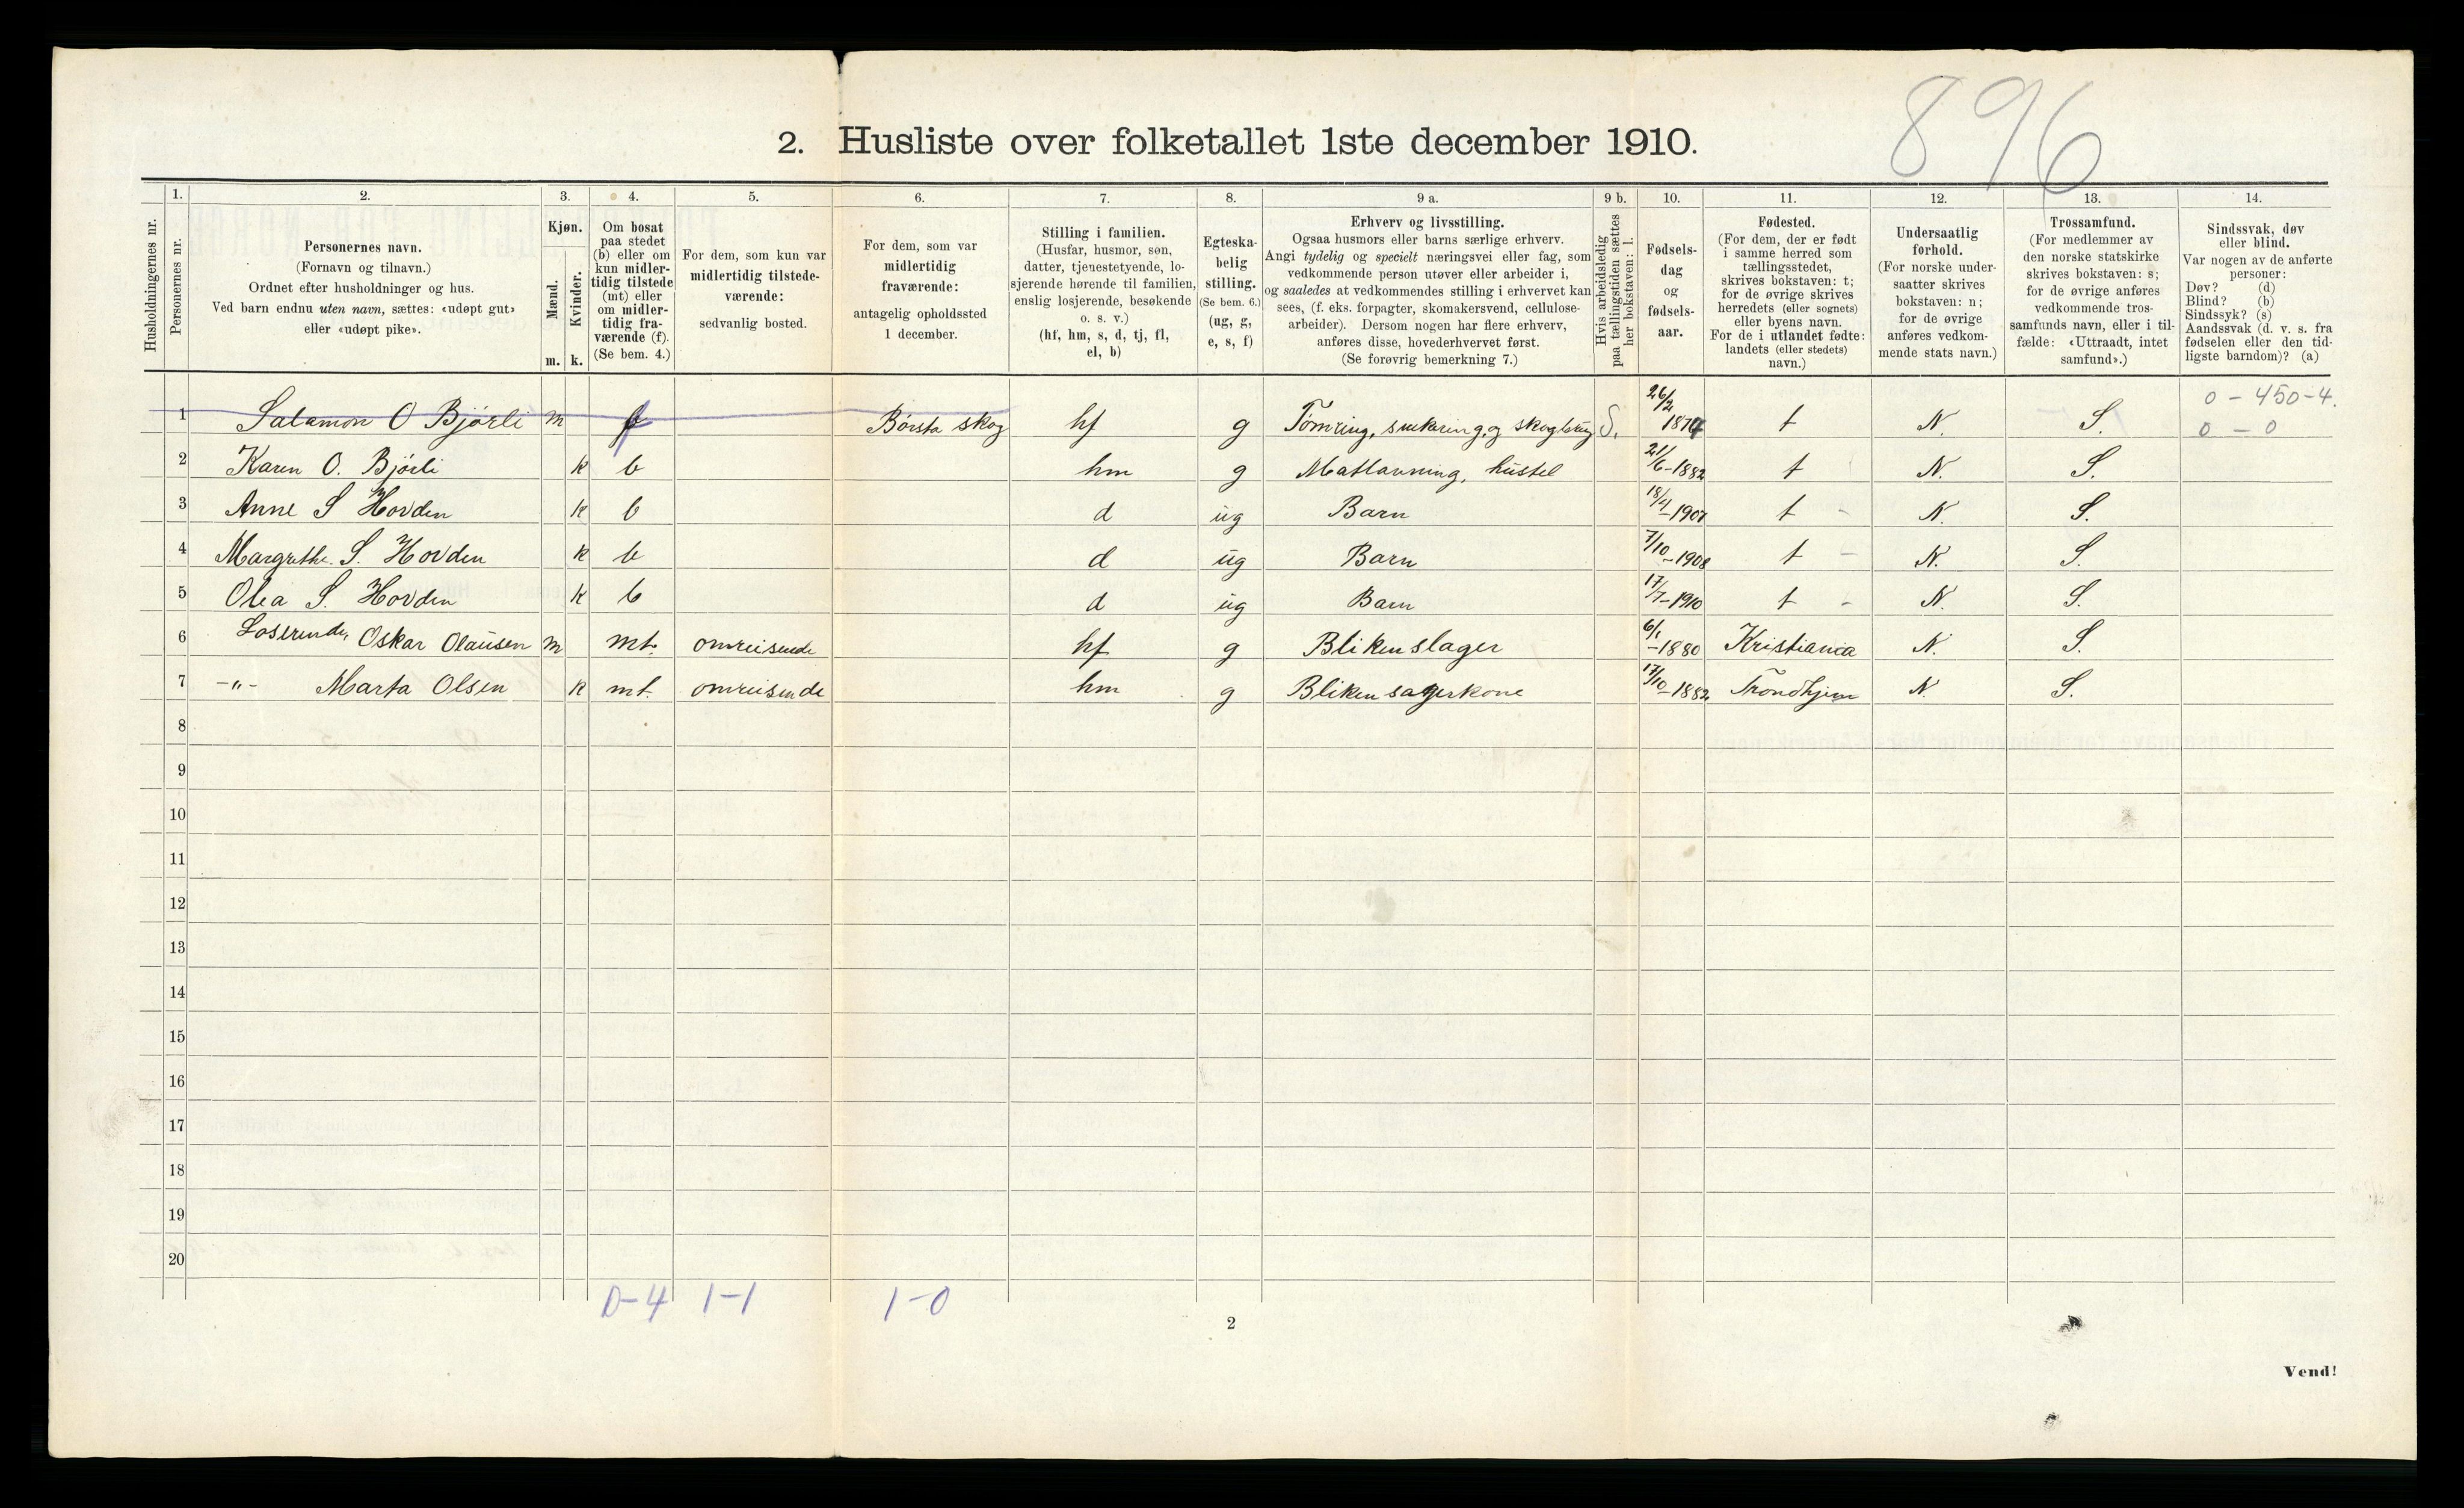 896
2. Husliste over folketallet 1ste december 1910.
Husholdningernes nr.
1. Personernes nr.
2. Personernes navn.
(Fornavn og tilnavn.)
Ordnet efter husholdninger og hus.
Ved barn endnu uten navn, sættes: «udøpt gut»
eller «udøpt pike».
3. Kjøn.
Mænd. m.
Kvinder. k.
4. Om bosat
paa stedet
(b) eller om
kun midler-
tidig tilstede
(mt) eller
om midler-
tidig fra-
værende (f).
(Se bem. 4.)
5. For dem, som kun var
midlertidig tilstede-
værende:
sedvanlig bosted.
6. For dem, som var
midlertidig
fraværende:
antagelig opholdssted
1 december.
7. Stilling i familien.
(Husfar, husmor, søn,
datter, tjenestetyende, lo-
sjerende hørende til familien,
enslig losjerende, besøkende
o. s. v.)
(hf, hm, s, d, tj, fl,
el, b)
8. Egteska-
belig
stilling.
(Se bem. 6.)
(ug, g,
e, s, f)
9 a. Erhverv og livsstilling.
Ogsaa husmors eller barns særlige erhverv.
Angi tydelig og specielt næringsvei eller fag, som
vedkommende person utøver eller arbeider i,
og saaledes at vedkommendes stilling i erhvervet kan
sees, (f. eks. forpagter, skomakersvend, cellulose-
arbeider). Dersom nogen har flere erhverv,
anføres disse, hovederhvervet først.
(Se forøvrig bemerkning 7.)
9 b. Hvis arbeidsledig
paa tællingstiden sættes
her bokstaven: l.
10. Fødsels-
dag
og
fødsels-
aar.
11. Fødested.
(For dem, der er født
i samme herred som
tællingsstedet,
skrives bokstaven: t;
for de øvrige skrives
herredets (eller sognets)
eller byens navn.
For de i utlandet fødte:
landets (eller stedets)
navn.)
12. Undersaatlig
forhold.
(For norske under-
saatter skrives
bokstaven: n;
for de øvrige
anføres vedkom-
mende stats navn.)
13. Trossamfund.
(For medlemmer av
den norske statskirke
skrives bokstaven: s;
for de øvrige anføres
vedkommende tros-
samfunds navn, eller i til-
fælde: «Uttraadt, intet
samfund».)
14. Sindssvak, døv
eller blind.
Var nogen av de anførte
personer:
Døv? (d)
Blind? (b)
Sindssyk? (s)
Aandssvak (d. v. s. fra
fødselen eller den tid-
ligste barndom)? (a)
0 - 450-4.
1 Salamon O Bjørli m f Børsta skog hf g Tømring, snekring, g skogbrug S. 26/2 1874 t N. S. 0 - 0
2 Karen O. Bjørli k b hm g Matlavning, hustel 21/6-1882 t N. S.
3 Anne S Hovden k b d ug Barn 18/4-1907 t - N. S.
4 Margrethe S. Hovden k b d ug Barn 7/10-1908 t - N. S.
5 Olea S. Hovden k b d ug Barn 17/7-1910 t - N. S.
6 Loserende, Oskar Olausen m mt. omreisende hf g Blikenslager 6/1-1880 Kristiania N. S.
7 -"- Marta Olsen k mt. omreisende hm g Blikensagerkone 17/10-1882 Trondhjem N. S.
8
9
10
11
12
13
14
15
16
17
18
19
20
0-4 1-1 1-0
2
Vend!